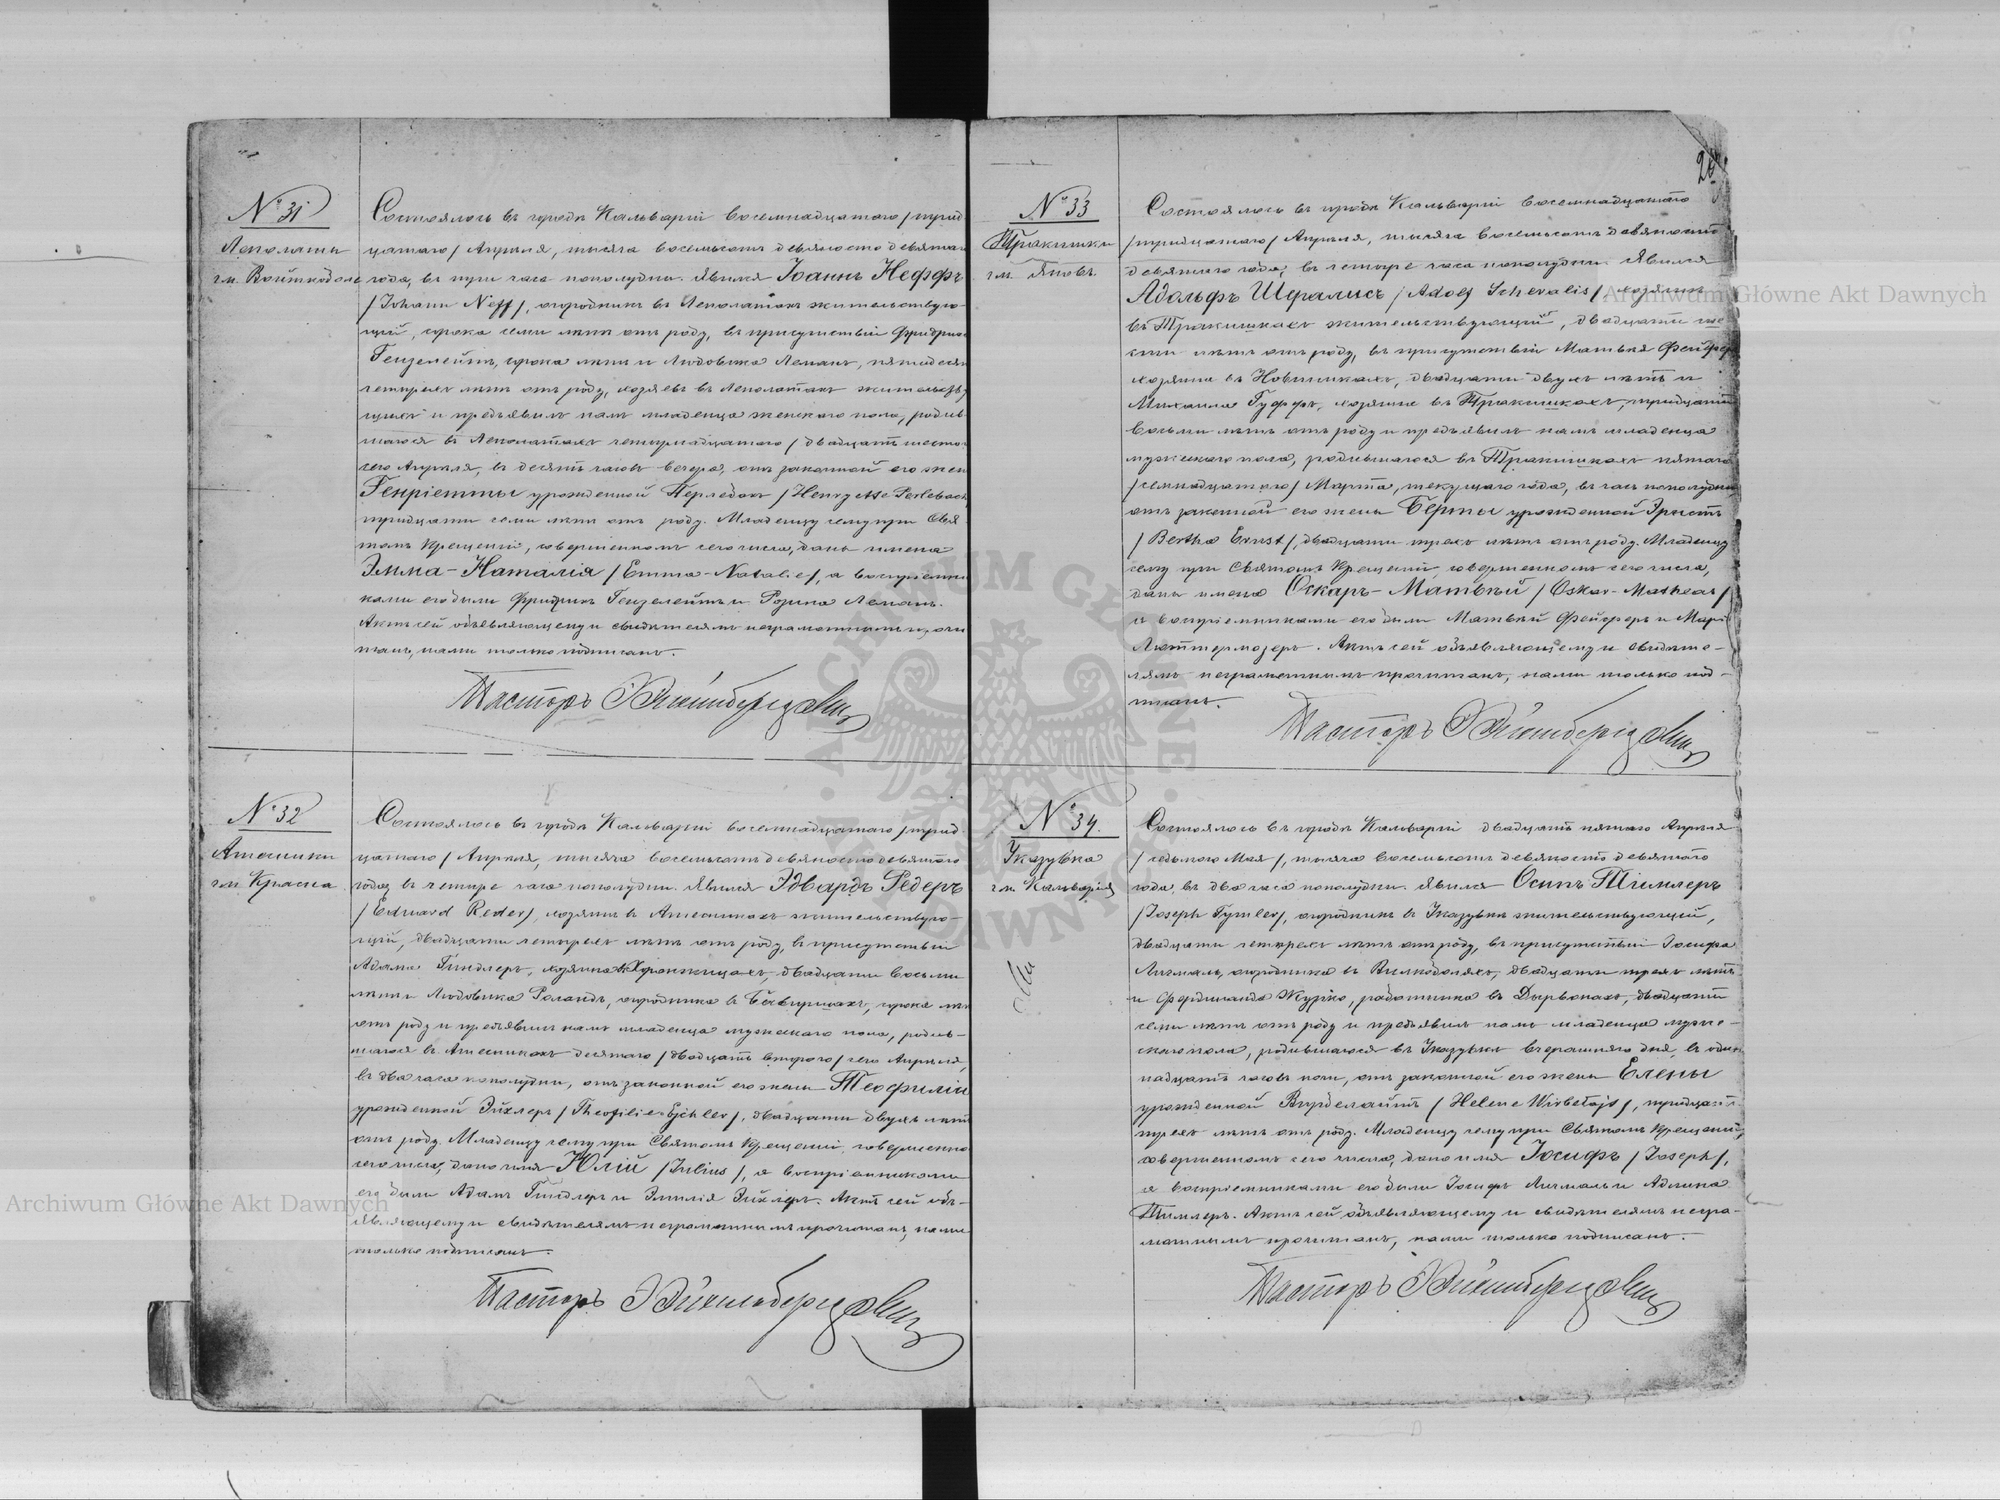 № 31
Лепалаты
гм. Войткобole
Состоялось въ городѣ Кальваріи восемнадцатаго /трид
цатаго/ Апрѣля, тысяча восемьсотъ девяносто девятаго
года, въ три часа пополудни. Явился Іоаннъ Неффъ
/Johann Neff/, огородникъ въ Лепалатахъ жительствую-
щій, сорока семи лѣтъ отъ роду, въ присутствіи Фридриха
Гензелейтъ, сорока лѣтъ и Людовика Леманъ, пятидесяти
четырехъ лѣтъ отъ роду, хозяевъ въ Лепалатахъ жительству
щихъ и предъявилъ намъ младенца женскаго пола, родив
шагося въ Лепалатахъ четырнадцатаго /двадцать шестаго/
сего Апрѣля, въ десять часовъ вечера, отъ законной его жены
Генріетты урожденной Перлебахъ /Henryette Perlebach
тридцати семи лѣтъ отъ роду. Младенцу сему при Свя
томъ Крещеніи, совершенномъ сего числа, даны имена
Эмма-Наталія /Emma-Natalie/, а воспріемни
ками его были Фридрихъ Гензелейтъ и Розина Леманъ.
Актъ сей объявляющему и свидѣтелямъ неграмотнымъ прочи
танъ, нами только подписанъ.
Пасторъ
№ 32
гм. Красна
Состоялось въ городѣ Кальваріи восемнадцатаго /трид
цатаго/ Апрѣля, тысяча восемьсотъ девяносто девятаго
года, въ четыре часа пополудни. Явился Эдвардъ Редеръ
/Eduard Reder/, хозяинъ въ жительствую-
щій, двадцати четырехъ лѣтъ отъ роду, въ присутствіи
Адама Гиндлеръ, хозяина въ двадцати восьми
лѣтъ и Людовика Роландъ, огородника въ сорока лѣтъ
отъ роду и предъявилъ намъ младенца мужескаго пола, родив-
шагося въ десятаго /двадцать втораго/ сего Апрѣля,
въ два часа пополудни, отъ законной его жены Теофиліи
урожденной Эйхлеръ /Theofilie Ejchler/, двадцати двухъ лѣтъ
отъ роду. Младенцу сему при Святомъ Крещеніи, совершенно
сего числа, дано имя Юлій /Julius/, а воспріемниками
его были Адамъ Гиндлеръ и Эмилія Эйхлеръ. Актъ сей объ-
являющему и свидѣтелямъ неграмотнымъ прочитанъ, нами
только подписанъ.
Пасторъ
№ 33
Тракишки
гм. Яновъ
Состоялось въ городѣ Кальваріи восемнадцатаго
/тридцатаго/ Апрѣля, тысяча восемьсотъ девяносто
девятаго года, въ четыре часа пополудни. Явился
Адольфъ Шевалисъ /Adolf Schevalis/ хозяинъ
въ Тракишкахъ жительствующій, двадцати
лѣтъ отъ роду, въ присутствіи Матвѣя Фейферъ
хозяина въ Новишкахъ, двадцати двухъ лѣтъ и
Михаила Гуффъ, хозяина въ Тракишкахъ, тридцати
восьми лѣтъ отъ роду и предъявилъ намъ младенца
мужескаго пола, родившагося въ Тракишкахъ пятаго
/семнадцатаго/ Марта, текущаго года, въ часъ пополудни,
отъ законной его жены Берты урожденной Эрнстъ
/Bertha Ernst/, двадцати трехъ лѣтъ отъ роду. Младенцу
сему при Святомъ Крещеніи совершенномъ сего числа,
даны имена Оскаръ-Матвѣй /Oskar-Matheas/
а воспріемниками его были Матвѣй Фейферъ и Марія
Актъ сей объявляющему и свидѣте-
лямъ неграмотнымъ прочитанъ, нами только под-
писанъ.
Пасторъ
№ 34.
Іказувка
гм. Кальварія
Состоялось въ городѣ Кальваріи двадцать пятаго Апрѣля
/седьмаго Мая/, тысяча восемьсотъ девяносто девятаго
года, въ два часа пополудни. Явился Осипъ Тимлеръ
/Joseph Tymler/, огородникъ въ Іказувкѣ жительствующій,
двадцати четырехъ лѣтъ отъ роду, въ присутствіи Іосифа
огородника въ двадцати трехъ лѣтъ
и Фердинанда работника въ двадцати
семи лѣтъ отъ роду и предъявилъ намъ младенца муже-
скаго пола, родившагося въ Іказувкѣ вчерашняго дня, въ один
надцать часовъ ночи, отъ законной его жены Елены
урожденной Вирбелайтъ /Helene Wirbelajt/, тридцати
трехъ лѣтъ отъ роду. Младенцу сему при Святомъ Крещеніи,
совершенномъ сего числа, дано имя Іосифъ /Joseph/,
а воспріемниками его были Іосифъ и Аделина
Тимлеръ. Актъ сей объявляющему и свидѣтелямъ негра-
мотнымъ прочитанъ, нами только подписанъ.
Пасторъ
Archiwum Główne Akt Dawnych
Archiwum Główne Akt Dawnych
ARCHIWUM GŁÓWNE AKT DAWNYCH